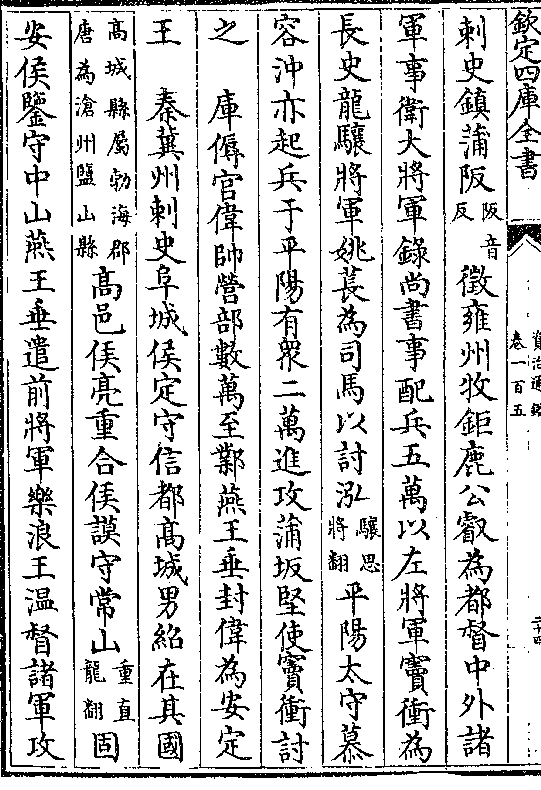 欽定四庫全書
資治通鑑
卷一百五
二十四
刺史鎮蒲阪阪音反徵雍州牧鉅鹿公叡為都督中外諸
軍事衛大將軍錄尚書事配兵五萬以左將軍竇衝為
長史龍驤將軍姚萇為司馬以討泓驤思將翻平陽太守慕
容沖亦起兵于平陽有衆二萬進攻蒲坂堅使竇衝討
之　庫傉官偉帥營部數萬至鄴燕王垂封偉為安定
王　秦冀州刺史阜城侯定守信都高城男紹在其國
高城縣屬勃海郡唐為滄州鹽山縣高邑侯亮重合侯謨守常山重直龍翻固
安侯鑒守中山燕王垂遣前將軍樂浪王温督諸軍攻